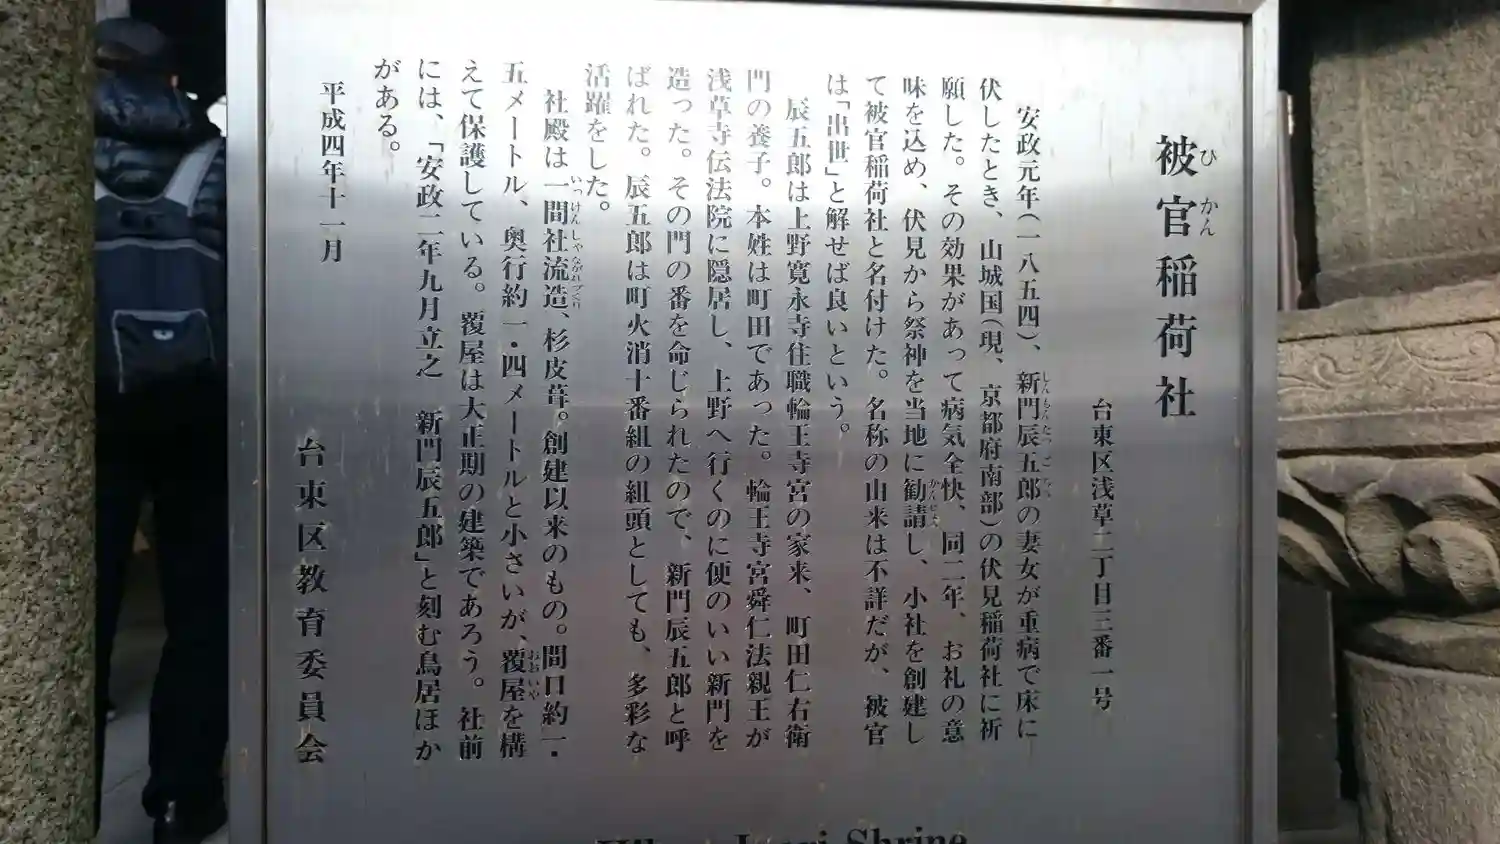 被官稲荷社
ひ かん
台東区浅草二丁目三番一号
安政元年(一八五四)、新門辰五郎の妻女が重病で床に
しんもんたつごろう
伏したとき、山城国(現、京都府南部)の伏見稲荷社に祈
願した。その効果があって病気全快、同二年、お礼の意
味を込め、伏見から祭神を当地に勧請し、小社を創建し
かんじょう
て被官稲荷社と名付けた。名称の由来は不詳だが、被官
は「出世」と解せば良いという。
辰五郎は上野寛永寺住職輪王寺宮の家来、町田仁右衛
門の養子。本姓は町田であった。輪王寺宮舜仁法親王が
浅草寺伝法院に隠居し、上野へ行くのに便のいい新門を
造った。その門の番を命じられたので、新門辰五郎と呼
ばれた。辰五郎は町火消十番組の組頭としても、多彩な
活躍をした。
社殿は一間社流造、杉皮葺。創建以来のもの。間口約一・
いっけんしゃながれづくり
五メートル、奥行約一・四メートルと小さいが、覆屋を構
おおいや
えて保護している。覆屋は大正期の建築であろう。社前
には、「安政二年九月立之 新門辰五郎」と刻む鳥居ほか
がある。
平成四年十一月
台東区教育委員会
Shrine